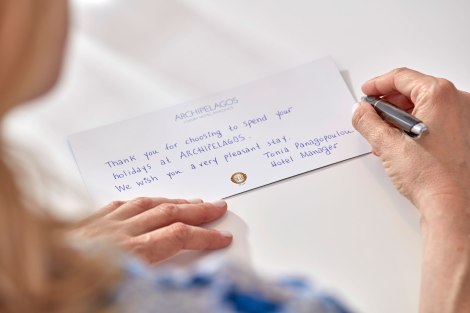 ARCHIPELAGOS
Thank you for choosing to spend your
holidays at ARCHIPELAGOS.
We wish you a very pleasant stay.
Tonia Panagopoulou
Hotel Manager